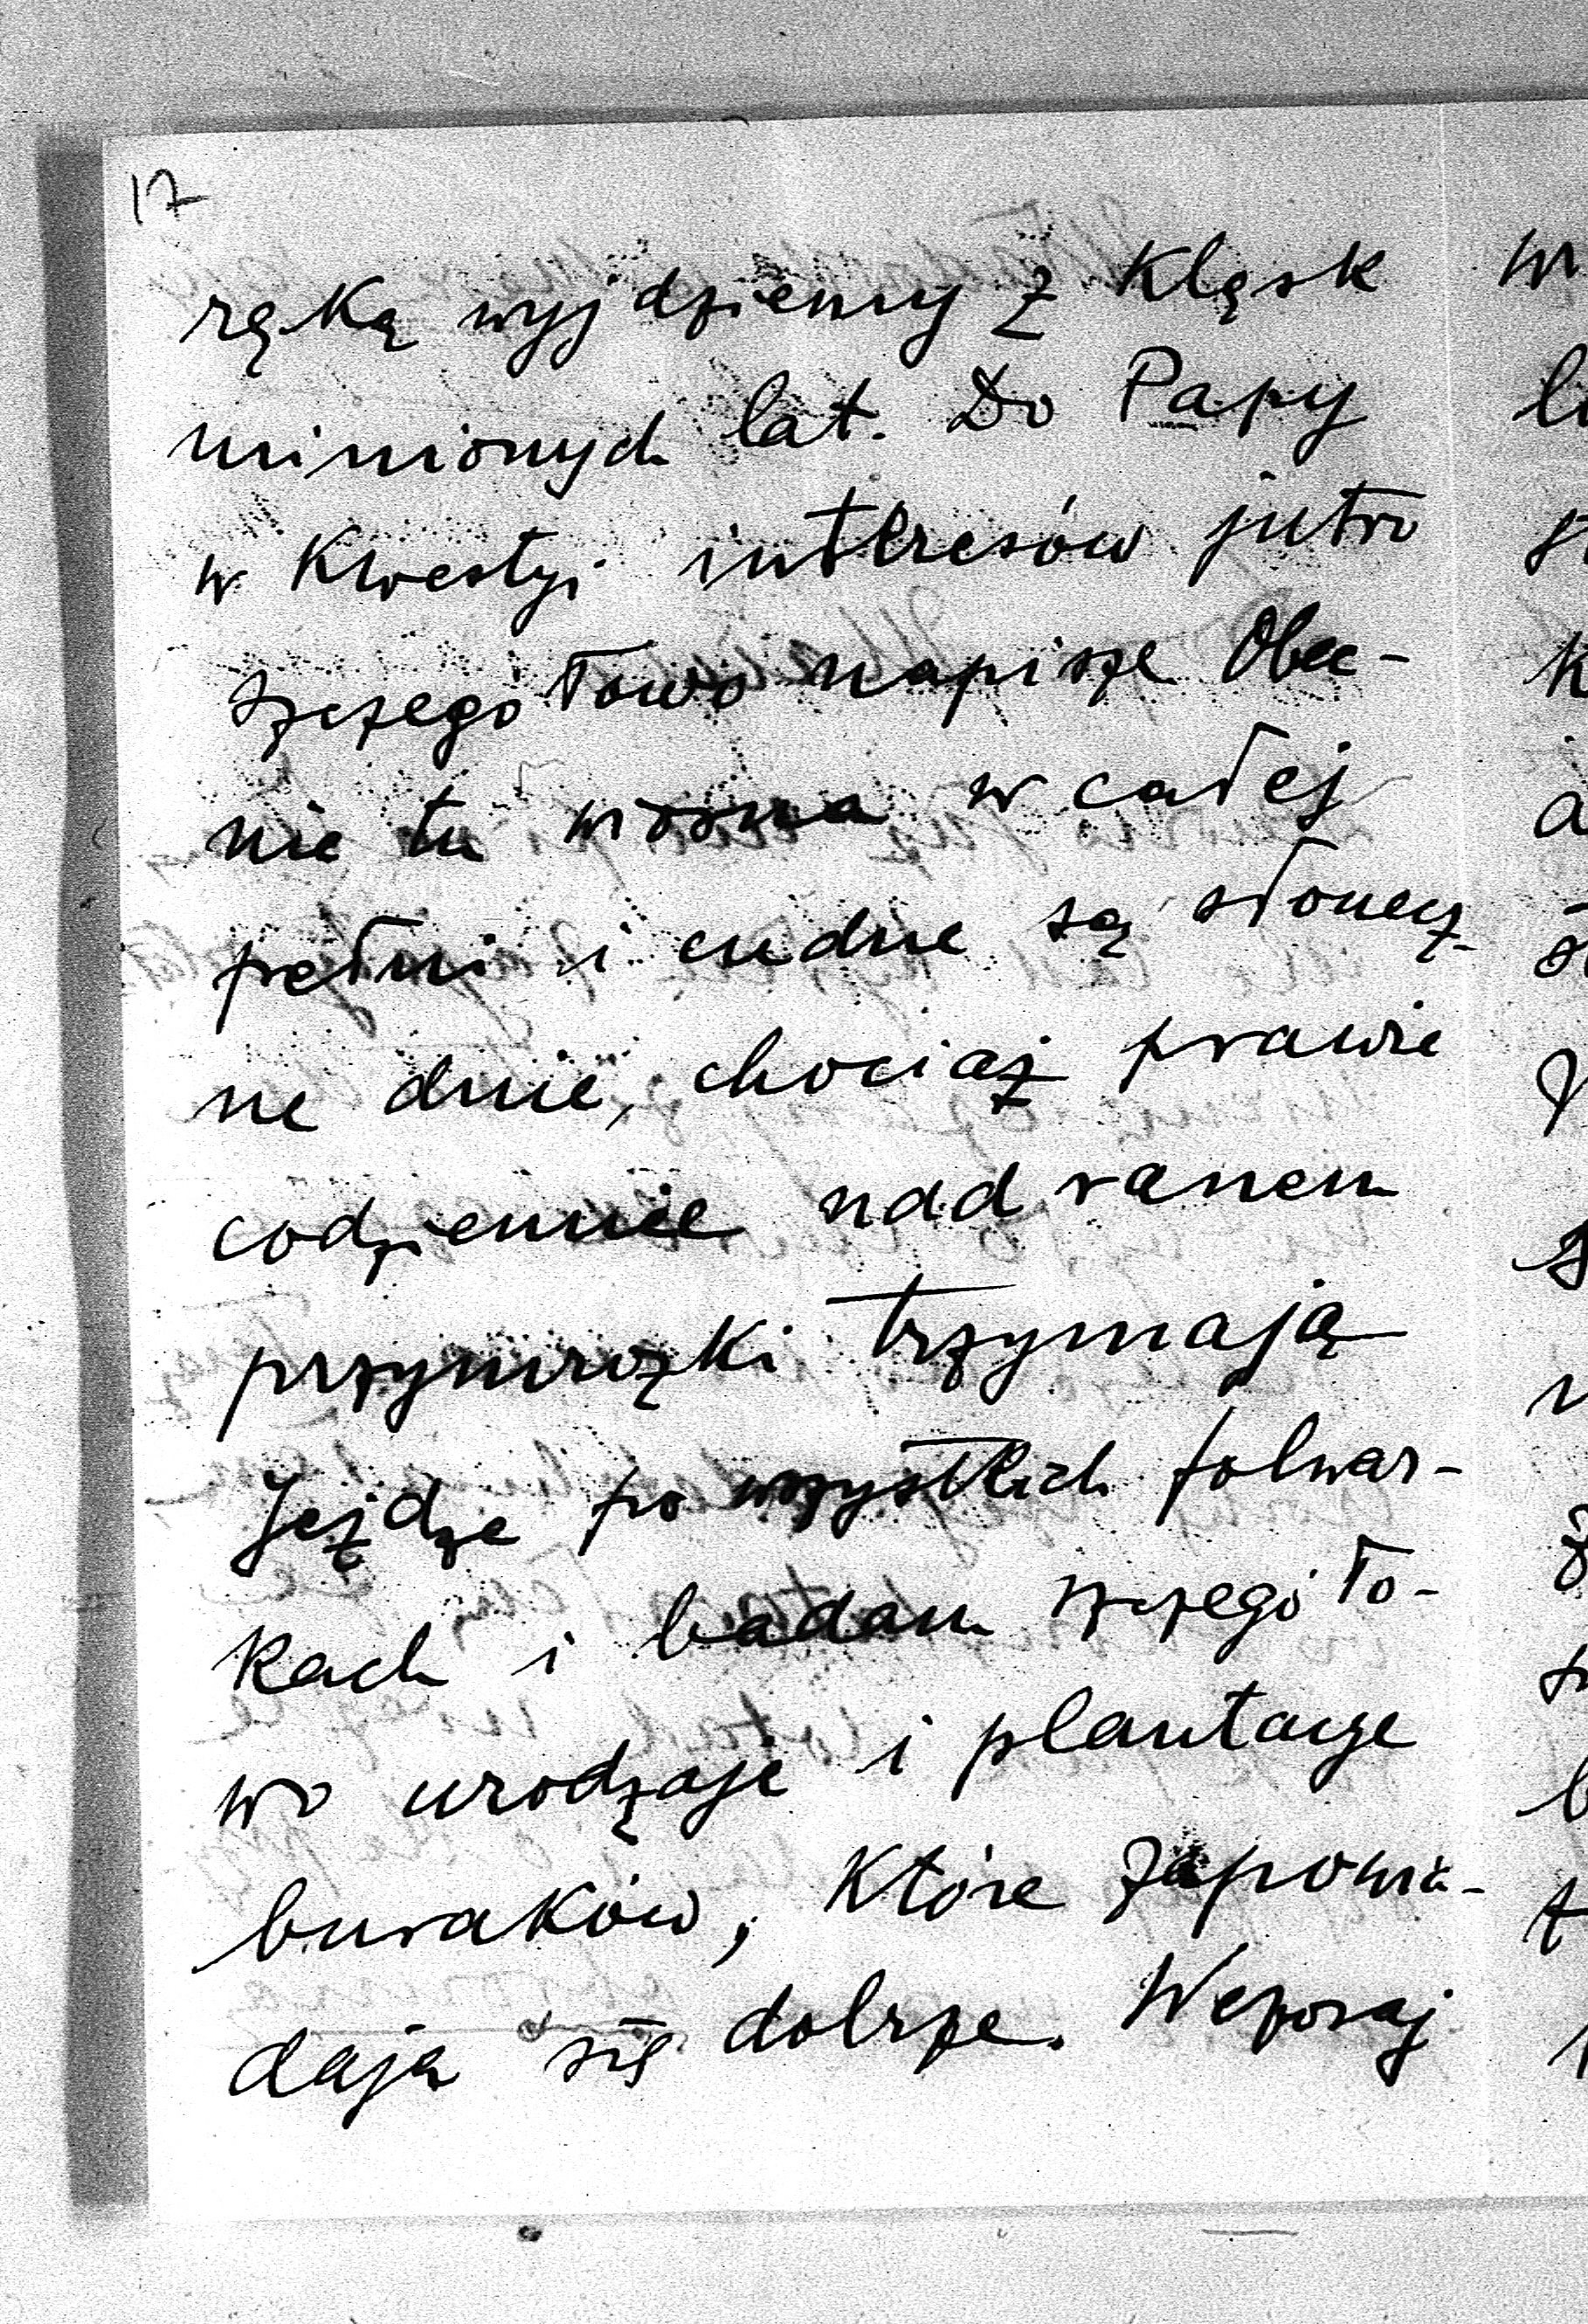 17
ręką wyjdziemy z klęsk
minionych lat. Do Papy
w kwestyi interesów jutro
szczegółowo napiszę Obec-
nie tu wiosna w całej
pełni i cudne są słonecz-
ne dnie, chociaż prawie
codziennie nad ranem
przymrozki trzymają
Jeżdżę po wszystkich folwar-
kach i badam szczegóło-
wo urodzaje i plantacye
buraków, które zapowia-
dają się dobrze. Wczoraj